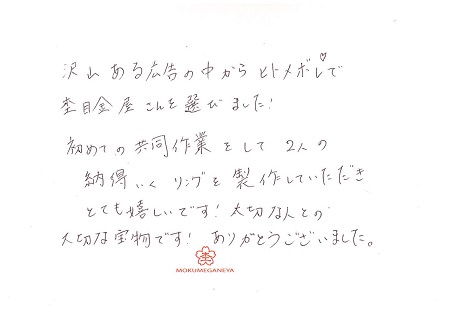 沢山ある広告の中からヒトメボレ♡で
杢目金屋さんを選びました!
初めての共同作業をして2人の
納得いくリングを製作していただき
とても嬉しいです!大切な人との
大切な宝物です! ありがとうございました。
MOKUMEGANEYA